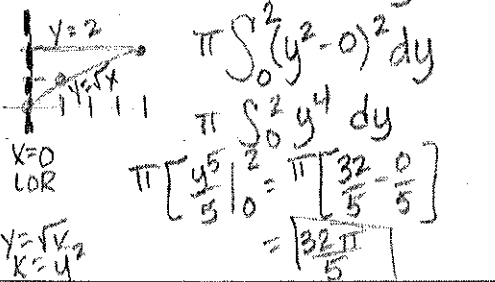 y=2
y=√x
x=0
LOR
y=√x
x=y²
π∫₀²(y²-0)²dy
π∫₀² y⁴ dy
π[y⁵/5|₀² = π[32/5 - 0/5]
= 32π/5